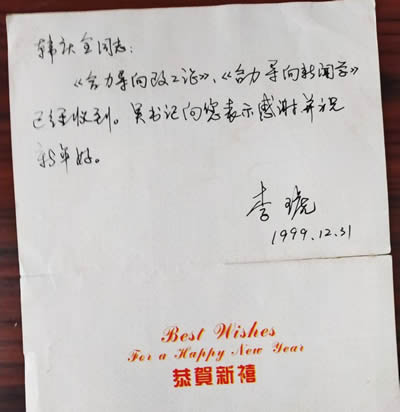 韩庆全同志：
《合力导向政工论》、《合力导向新闻学》
已经收到。吴书记向您表示感谢并祝
新年好。
李琥
1999.12.31
Best Wishes
For a Happy New Year
恭賀新禧